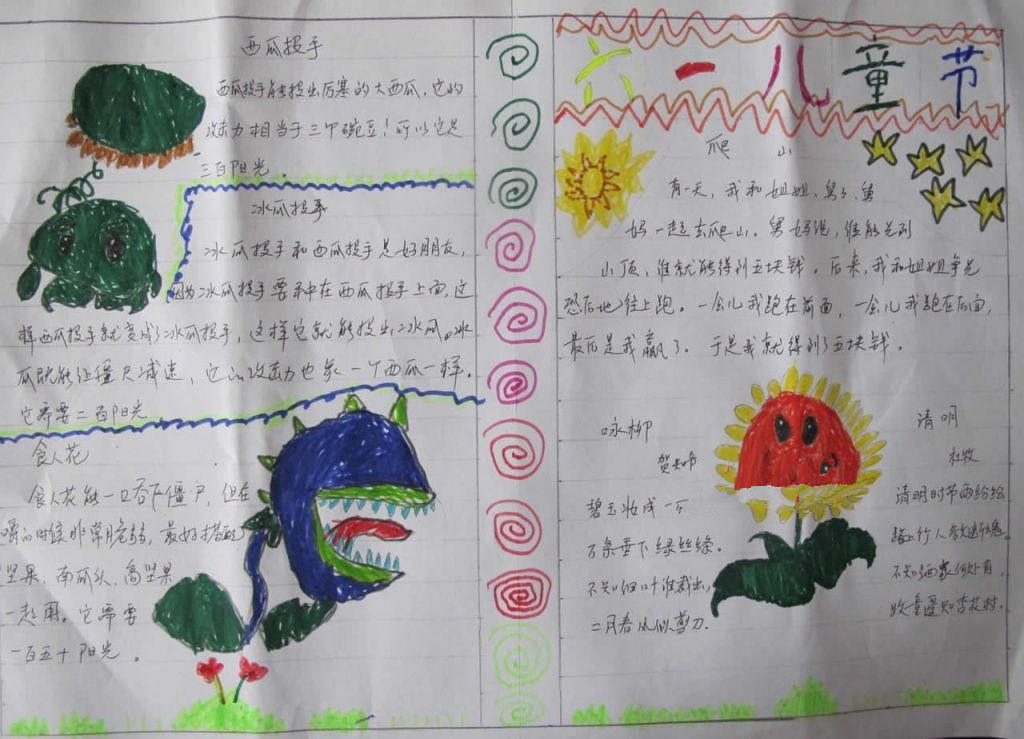 西瓜投手
西瓜投手能投出厉寒的大西瓜，它的
攻击力相当于三个豌豆！可以它是
三百阳光。
冰瓜投手
冰瓜投手和西瓜投手是好朋友，
因为冰瓜投手要种在西瓜投手上面，这
样西瓜投手就变成了冰瓜投手，这样它就能投出冰瓜。冰
瓜既能让僵尸减速，它的攻击力也象一个西瓜一样。
它需要二百阳光
食人花
食人花能一口吞下僵尸，但在
嚼的时候非常脆弱，最好搭配
坚果、南瓜头、高坚果
一起用。它需要
一百五十阳光。
六一儿童节
爬山
有一天，我和姐姐、舅舅、舅
妈一起去爬山。舅妈说，谁能先到
山顶，谁就能得到五块钱。后来，我和姐姐争先
恐后地往上跑。一会儿我跑在前面，一会儿我跑在后面，
最后是我赢了。于是我就得到了五块钱。
咏柳
贺知
碧玉妆成一
万条垂下绿丝绦。
不知细叶谁裁出，
二月春风似剪刀.
清明
杜牧
清明时节雨纷纷
路上行人欲断魂
不知酒家何处有，
牧童遥知杏花村.